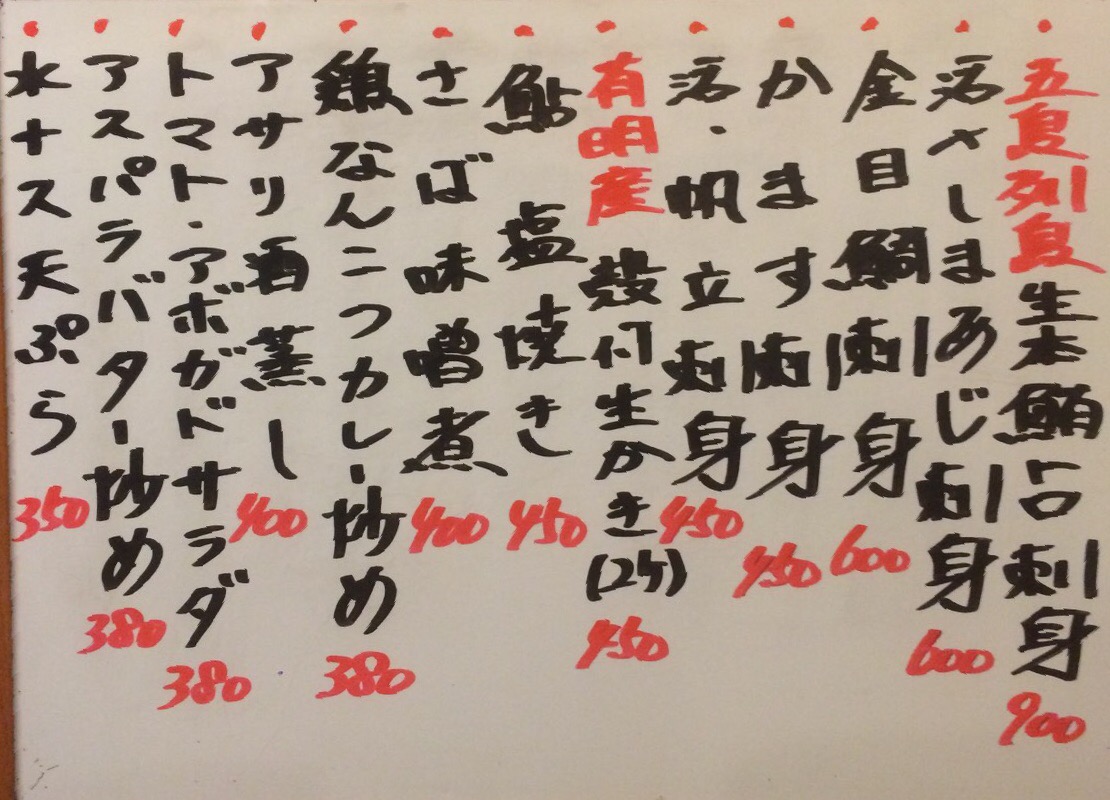 五島列島生本鮪占刺身 900
活〆しまあじ刺身 600
金目鯛刺身 600
かます刺身 450
活・帆立刺身 450
有明産殻付生かき(2ケ) 450
鮎 塩焼き 450
さば味噌煮 400
鶏なんこつカレー炒め 380
アサリ酒蒸し 400
トマト・アボガドサラダ 380
アスパラバター炒め 380
水ナス天ぷら 350